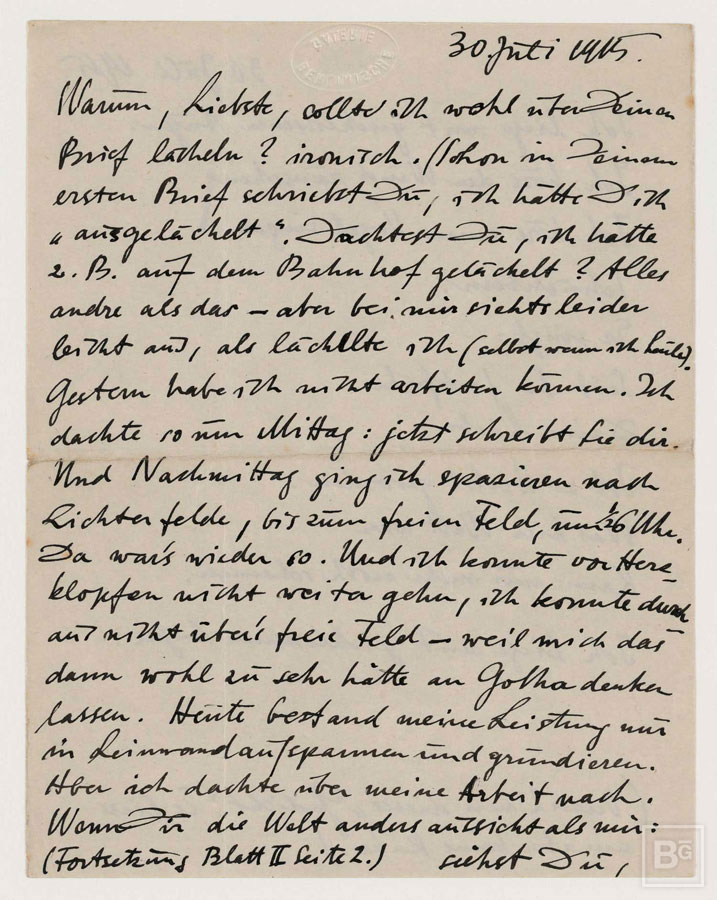 30. Juli 1915.
Warum, Liebste, sollte ich wohl über Deinen
Brief lächeln? ironisch. (Schon in Deinem
ersten Brief schriebst Du, ich hätte Dich
„ausgelächelt". Dachtest Du, ich hätte
z. B. auf dem Bahnhof gelächelt? Alles
andre als das – aber bei mir siehts leider
leicht aus, als lächelte ich (selbst wenn ich heule).
Gestern habe ich nicht arbeiten können. Ich
dachte so um Mittag: jetzt schreibt Sie dir.
Und Nachmittag ging ich spazieren nach
Lichterfelde, bis zum freien Feld, um ½6 Uhr.
Da war's wieder so. Und ich konnte vor Herz
klopfen nicht weiter gehn, ich konnte durch
aus nicht über's freie Feld – weil mich das
dann wohl zu sehr hätte an Gotha denken
lassen. Heute bestand meine Leistung nur
in Leinwandaufspannen und grundieren.
Aber ich dachte über meine Arbeit nach.
Wenn Dir die Welt anders aussieht als mir:
(Fortsetzung Blatt II Seite 2.) siehst Du,
BG